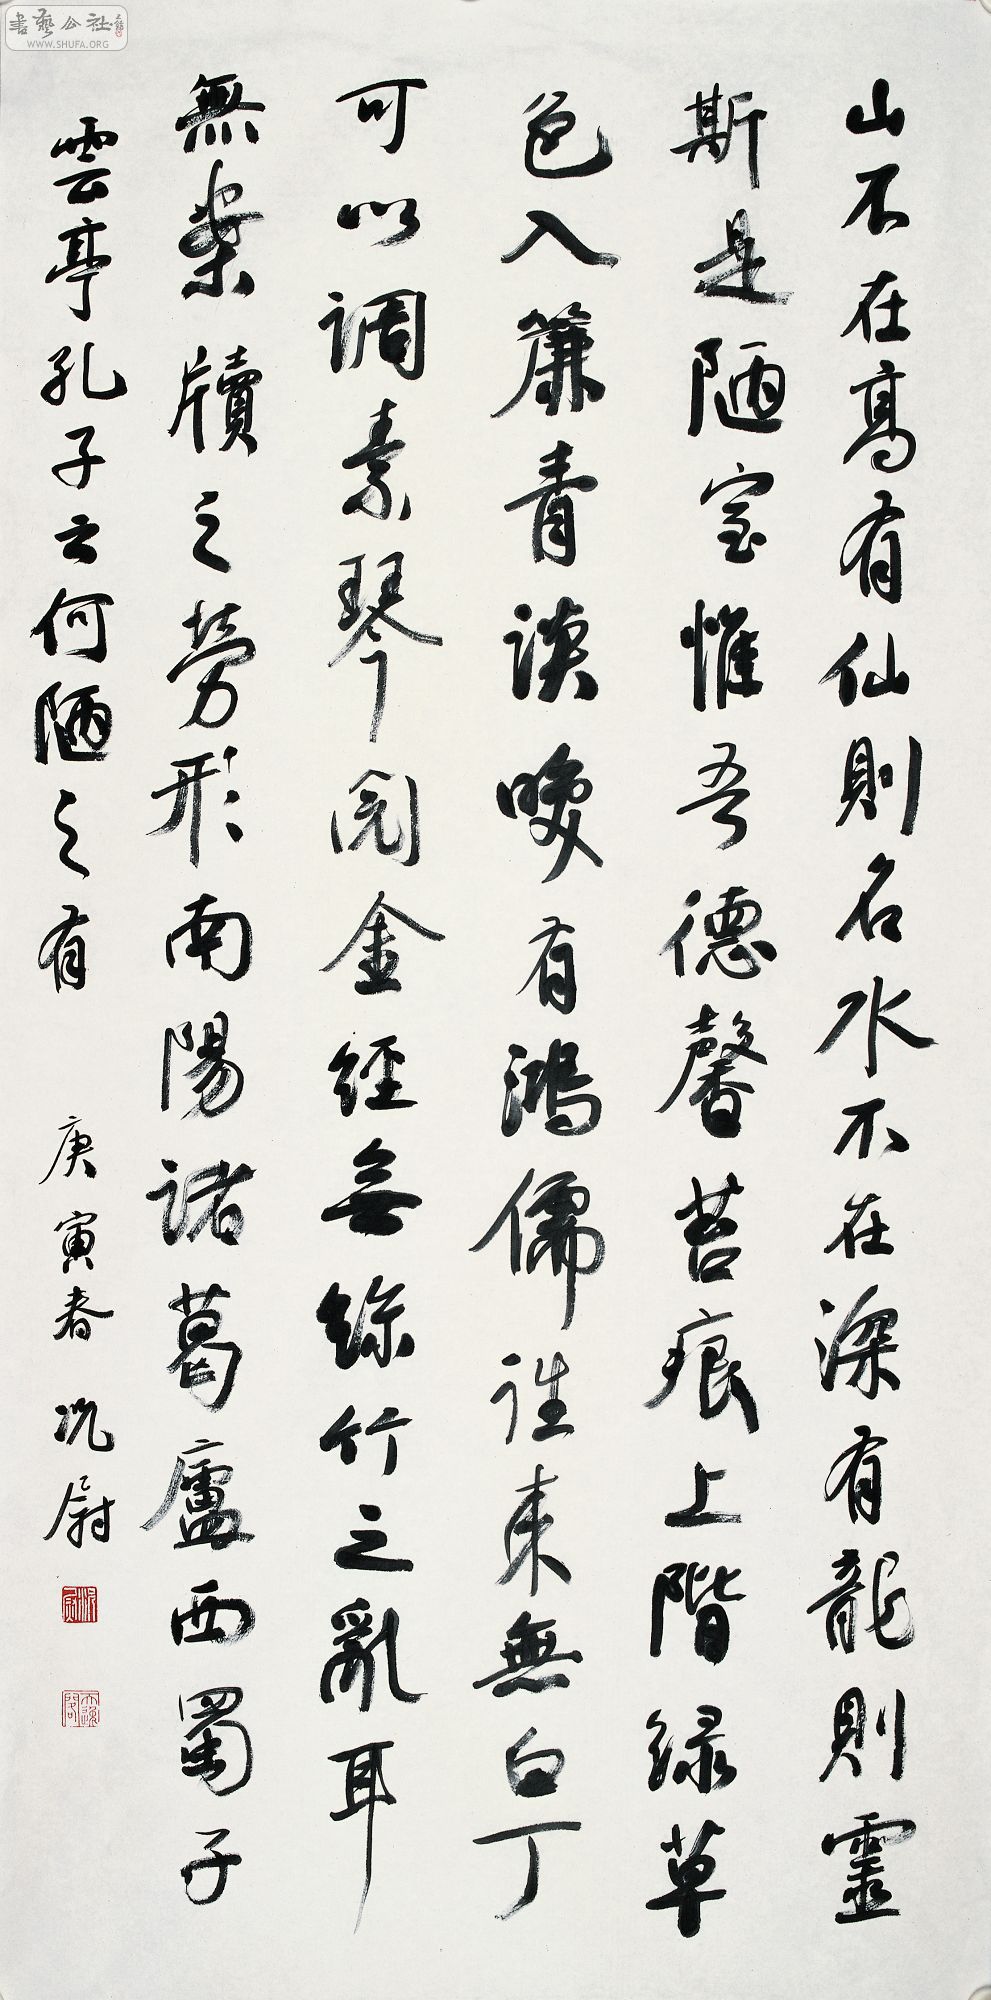 書藝公社
WWW.SHUFA.ORG
山不在高有仙則名水不在深有龍則靈
斯是陋室惟吾德馨苔痕上階緑草
色入簾青談咲有鴻儒往来無白丁
可以調素琴閱金經無絲竹之亂耳
無案牘之勞形南陽諸葛廬西蜀子
雲亭孔子云何陋之有 庚寅春 况尉